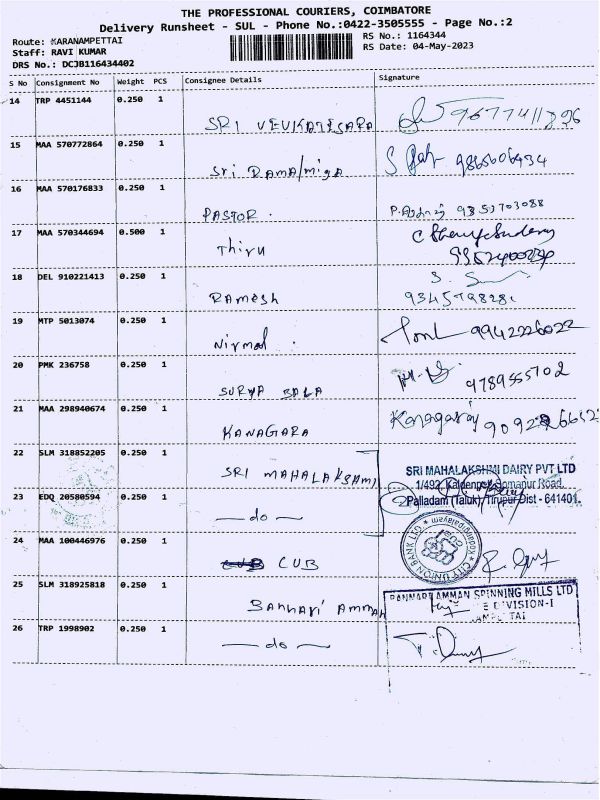 THE PROFESSIONAL COURIERS, COIMBATORE
Delivery Runsheet - SUL - Phone No.:0422-3505555 - Page No.:2
Route: KARANAMPETTAI RS No.: 1164344
Staff: RAVI KUMAR RS Date: 04-May-2023
DRS No.: DCJB116434402
S No Consignment No Weight PCS Consignee Details Signature
14 TRP 4451144 0.250 1
SRI VEVKATESARA
15 MAA 570772864 0.250 1
Sri RAMA/miga
16 MAA 570176833 0.250 1
PASTOR.
17 MAA 570344694 0.500 1
Thiru
18 DEL 910221413 0.250 1
RAMESH
19 MTP 5013074 0.250 1
Nirmal . 9942226022
20 PMK 236758 0.250 1
SURYA BALA 9789555702
21 MAA 298940674 0.250 1
KANAGARA Kanagaraj
22 SLM 318852205 0.250 1
SRI MAHALAKSAMI SRI MAHALAKSHMI DAIRY PVT LTD
1/492, Somanur Road,
23 EDQ 20580594 0.250 1 Palladam (Taluk), Tirupur Dist - 641401.
do
24 MAA 100446976 0.250 1 CITY UNION BANK LTD
CUB
25 SLM 318925818 0.250 1 BANNARI AMMAN SPINNING MILLS LTD
BANNARI AMMAN DIVISION-I
26 TRP 1998902 0.250 1
do